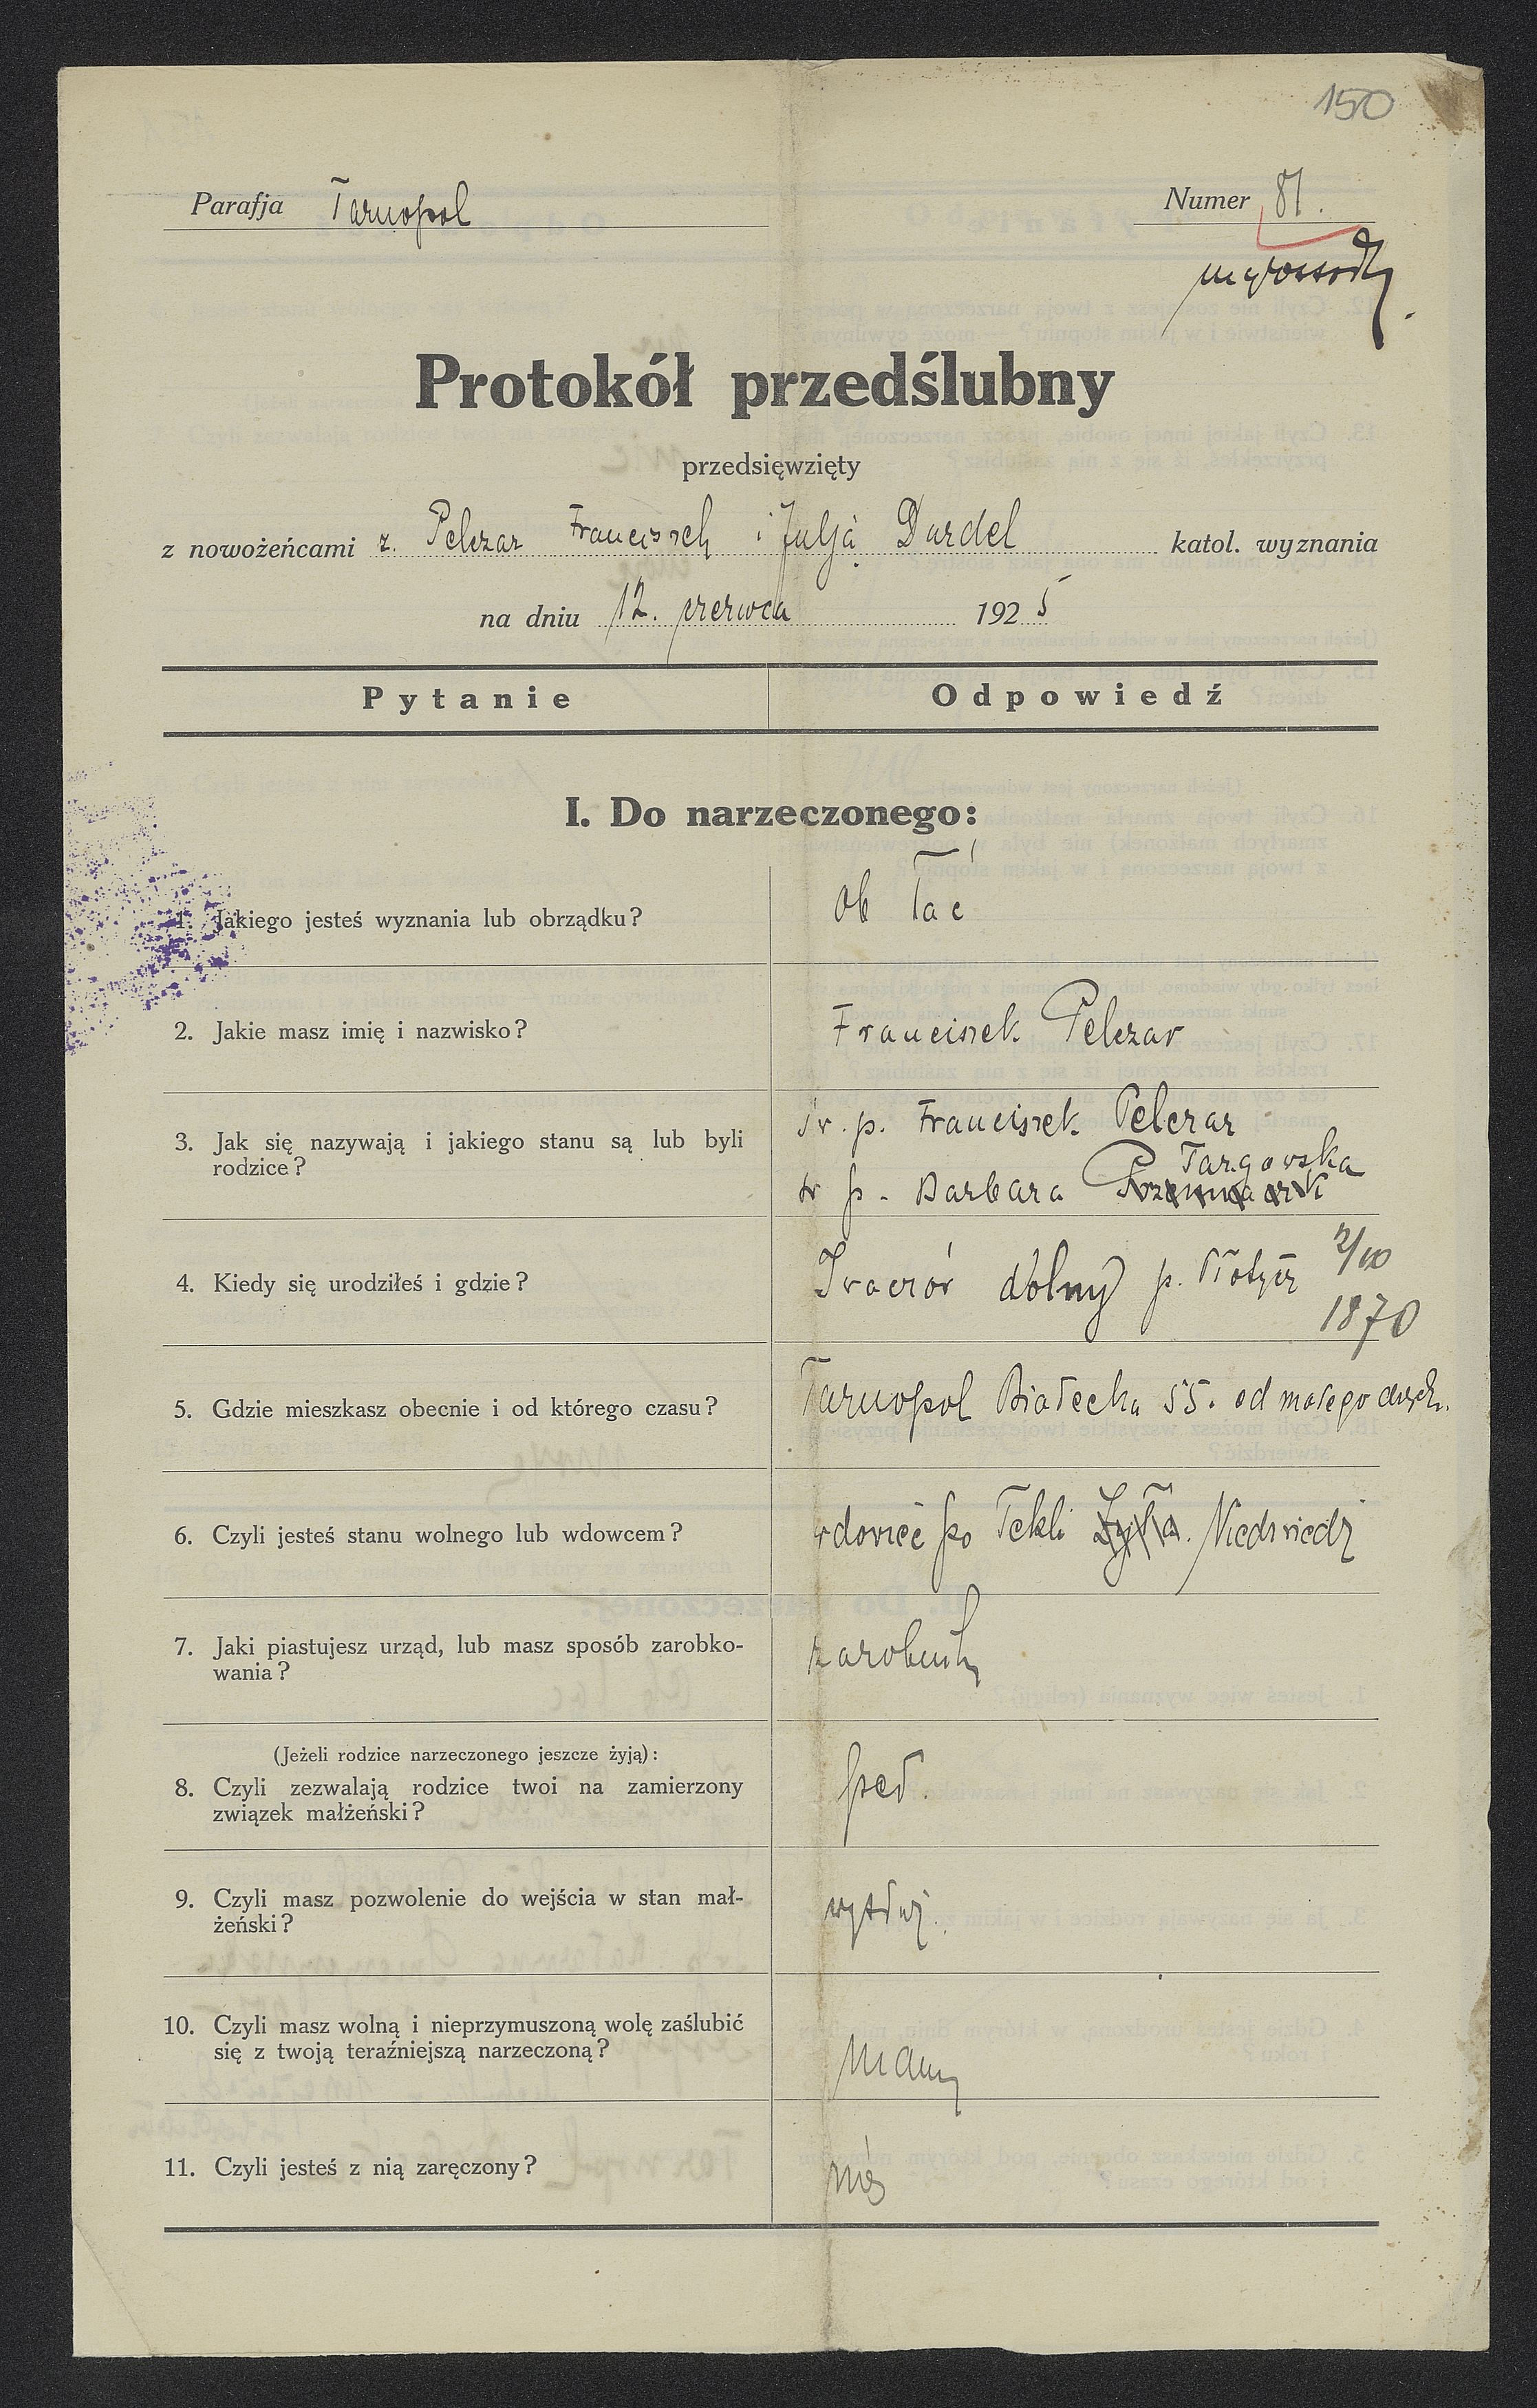 150
Parafja Tarnopol
Numer 81.
Protokół przedślubny
przedsięwzięty
z nowożeńcami z. Pelczar Franciszek i Julją Durdel katol. wyznania
na dniu 12. czerwca 1925
Pytanie
Odpowiedź
I. Do narzeczonego:
1. Jakiego jesteś wyznania lub obrządku?
ob łac
2. Jakie masz imię i nazwisko?
Franciszek Pelczar
3. Jak się nazywają i jakiego stanu są lub byli
rodzice?
św. p. Franciszek Pelczar
św p. Barbara Targowska
4. Kiedy się urodziłeś i gdzie?
dolny p. 2/10
1870
5. Gdzie mieszkasz obecnie i od którego czasu?
Tarnopol Białecka 55. od małego
6. Czyli jesteś stanu wolnego lub wdowcem?
wdowiec po Tekli Żyła. Niedźwiedź
7. Jaki piastujesz urząd, lub masz sposób zarobko-
wania?
zarobnik
(Jeżeli rodzice narzeczonego jeszcze żyją):
8. Czyli zezwalają rodzice twoi na zamierzony
związek małżeński?
9. Czyli masz pozwolenie do wejścia w stan mał-
żeński?
10. Czyli masz wolną i nieprzymuszoną wolę zaślubić
się z twoją teraźniejszą narzeczoną?
mam
11. Czyli jesteś z nią zaręczony?